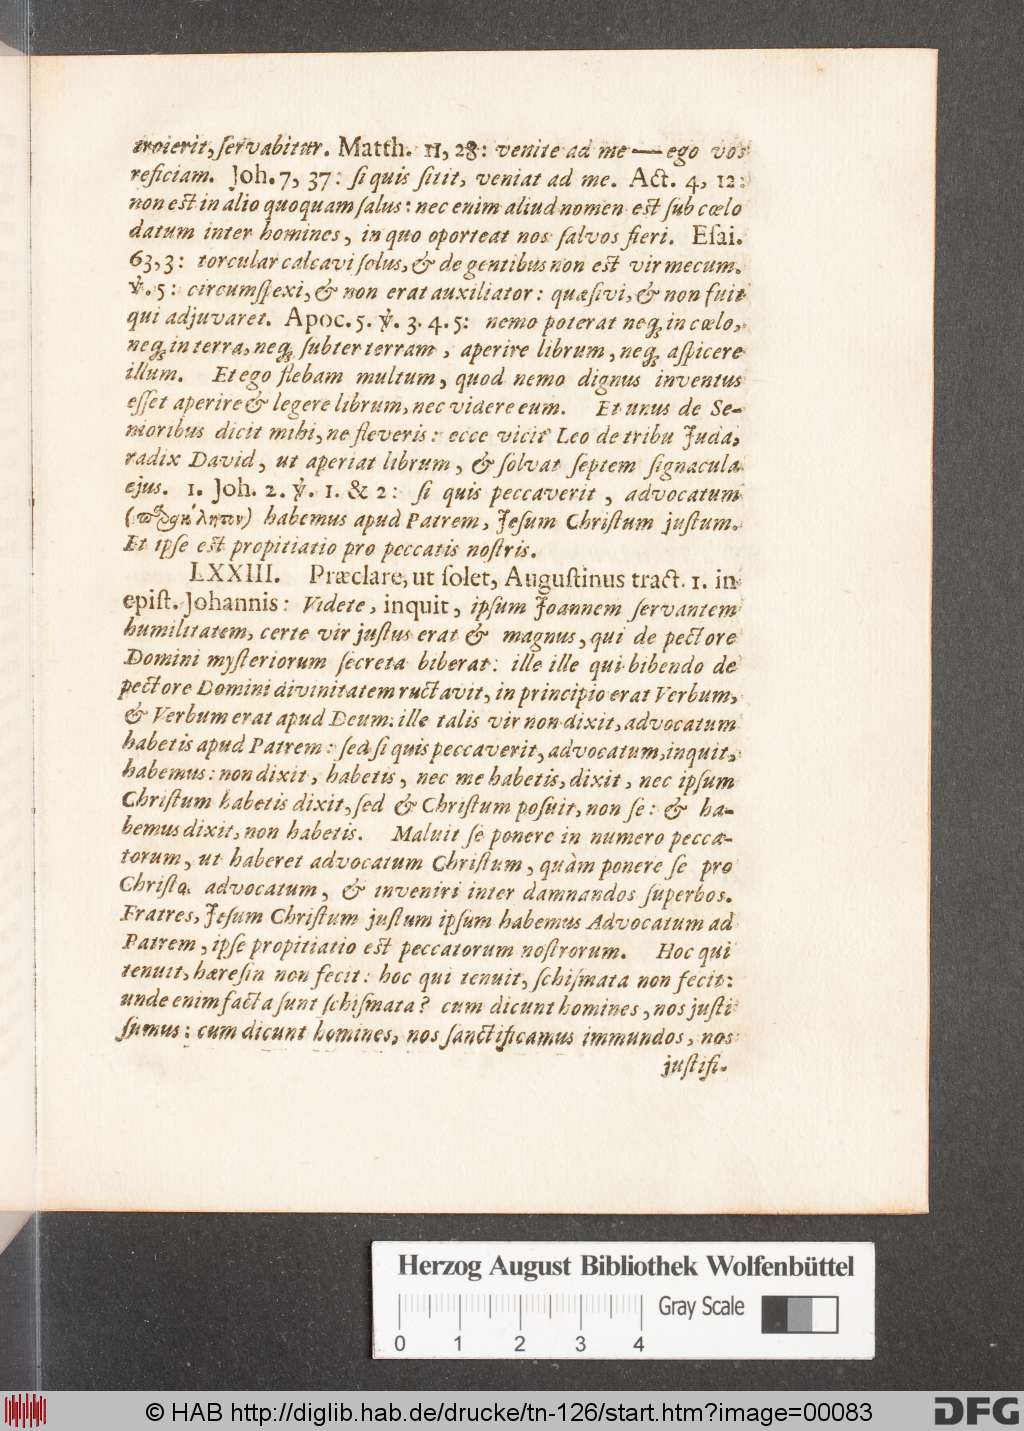 troierit, ſervabitur. Matth. 11, 28: venite ad me — ego vos
reficiam. Joh. 7, 37: ſi quis ſitit, veniat ad me. Act. 4, 12:
non eſt in alio quoquam ſalus: nec enim aliud nomen eſt ſub cœlo
datum inter homines, in quo oporteat nos ſalvos fieri. Eſai.
63, 3: torcular calcavi ſolus, & de gentibus non eſt vir mecum.
ꝟ. 5: circumſpexi, & non erat auxiliator: quæſivi, & non fuit
qui adjuvaret. Apoc. 5. ꝟ. 3. 4. 5: nemo poterat neq; in cœlo,
neq; in terra, neq; ſubter terram, aperire librum, neq; aſpicere
illum. Et ego flebam multum, quod nemo dignus inventus
eſſet aperire & legere librum, nec videre eum. Et unus de Se-
nioribus dicit mihi, ne fleveris: ecce vicit Leo de tribu Juda,
radix David, ut aperiat librum, & ſolvat ſeptem ſignacula
ejus. 1. Joh. 2. ꝟ. 1. & 2: ſi quis peccaverit, advocatum
(παράκλητον) habemus apud Patrem, Jeſum Chriſtum juſtum.
Et ipſe eſt propitiatio pro peccatis noſtris.
LXXIII. Præclare, ut ſolet, Auguſtinus tract. 1. in
epiſt. Johannis: Videte, inquit, ipſum Joannem ſervantem
humilitatem, certe vir juſtus erat & magnus, qui de pectore
Domini myſteriorum ſecreta biberat: ille ille qui bibendo de
pectore Domini divinitatem ructavit, in principio erat Verbum,
& Verbum erat apud Deum: ille talis vir non dixit, advocatum
habetis apud Patrem: ſed ſi quis peccaverit, advocatum, inquit,
habemus: non dixit, habetis, nec me habetis, dixit, nec ipſum
Chriſtum habetis dixit, ſed & Chriſtum poſuit, non ſe: & ha-
bemus dixit, non habetis. Maluit ſe ponere in numero pecca-
torum, ut haberet advocatum Chriſtum, quàm ponere ſe pro
Chriſto advocatum, & inveniri inter damnandos ſuperbos.
Fratres, Jeſum Chriſtum juſtum ipſum habemus Advocatum ad
Patrem, ipſe propitiatio eſt peccatorum noſtrorum. Hoc qui
tenuit, hæreſin non fecit: hoc qui tenuit, ſchiſmata non fecit:
unde enim facta ſunt ſchiſmata? cum dicunt homines, nos juſti
ſumus: cum dicunt homines, nos ſanctificamus immundos, nos
juſtifi-
Herzog August Bibliothek Wolfenbüttel
Gray Scale
0 1 2 3 4
© HAB http://diglib.hab.de/drucke/tn-126/start.htm?image=00083
DFG